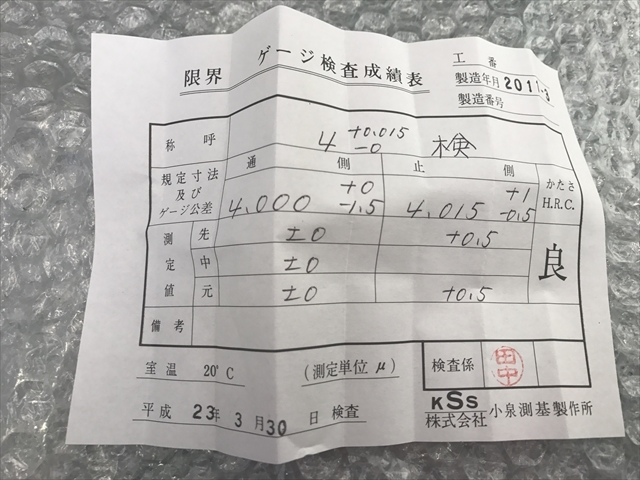 限界 ゲージ検査成績表
工番
製造年月 2011.3
製造番号
称呼 4 +0.015 -0 検
規定寸法及びゲージ公差
通側
4.000 +0 -1.5
止側
4.015 +1 -0.5
かたさ H.R.C.
測定値
先 ±0 +0.5
中 ±0
元 ±0 +0.5
良
備考
室温 20°C (測定単位 μ)
検査係 田中
平成 23年 3月 30日 検査
KSS
株式会社 小泉測基製作所